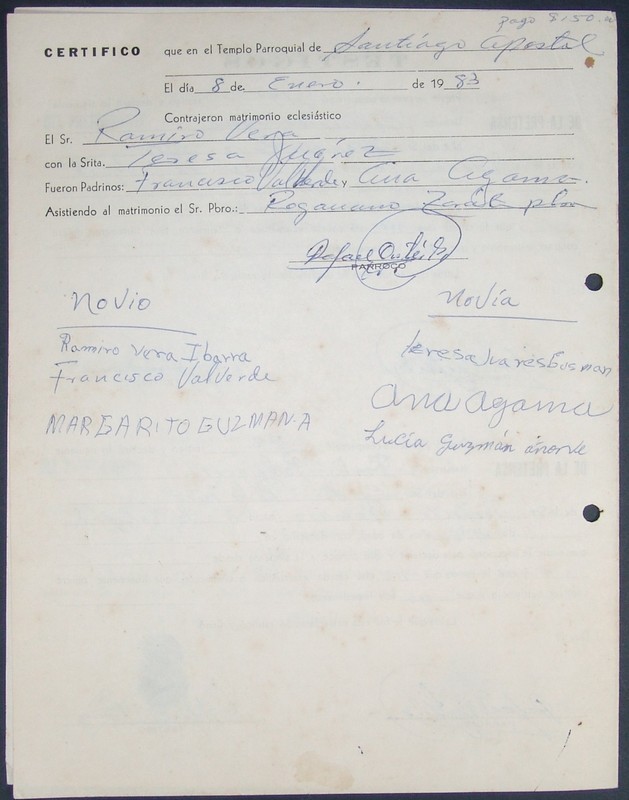 pago $150.00
CERTIFICO que en el Templo Parroquial de Santiago Apostol
El día 8 de Enero. de 19 83
Contrajeron matrimonio eclesiástico
El Sr. Ramiro Vera
con la Srita. Teresa
Fueron Padrinos: Francisco Valverde y Ana Agama.
Asistiendo al matrimonio el Sr. Pbro.: Zarate pbro
Rafael
PARROCO
Novio Novia
Ramiro Vera Ibarra teresa Juares Gusman
Francisco Valverde ana agama
MARGARITO GUZMAN-A Lucía Guzmán anorve